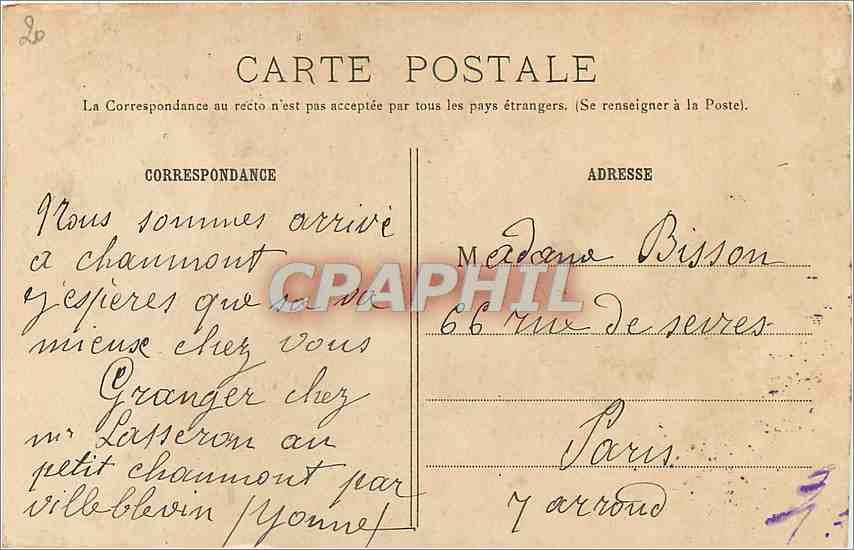 20
CARTE POSTALE
La Correspondance au recto n'est pas acceptée par tous les pays étrangers. (Se renseigner à la Poste).
CORRESPONDANCE
Nous sommes arrivé
a chaumont
j'espères que sa va
mieux chez vous
Granger chez
mr Lasseron au
petit chaumont par
villeblevin (Yonne)
ADRESSE
Madame Bisson
66 rue de sevres
Paris
7 arrond
CPAPHIL